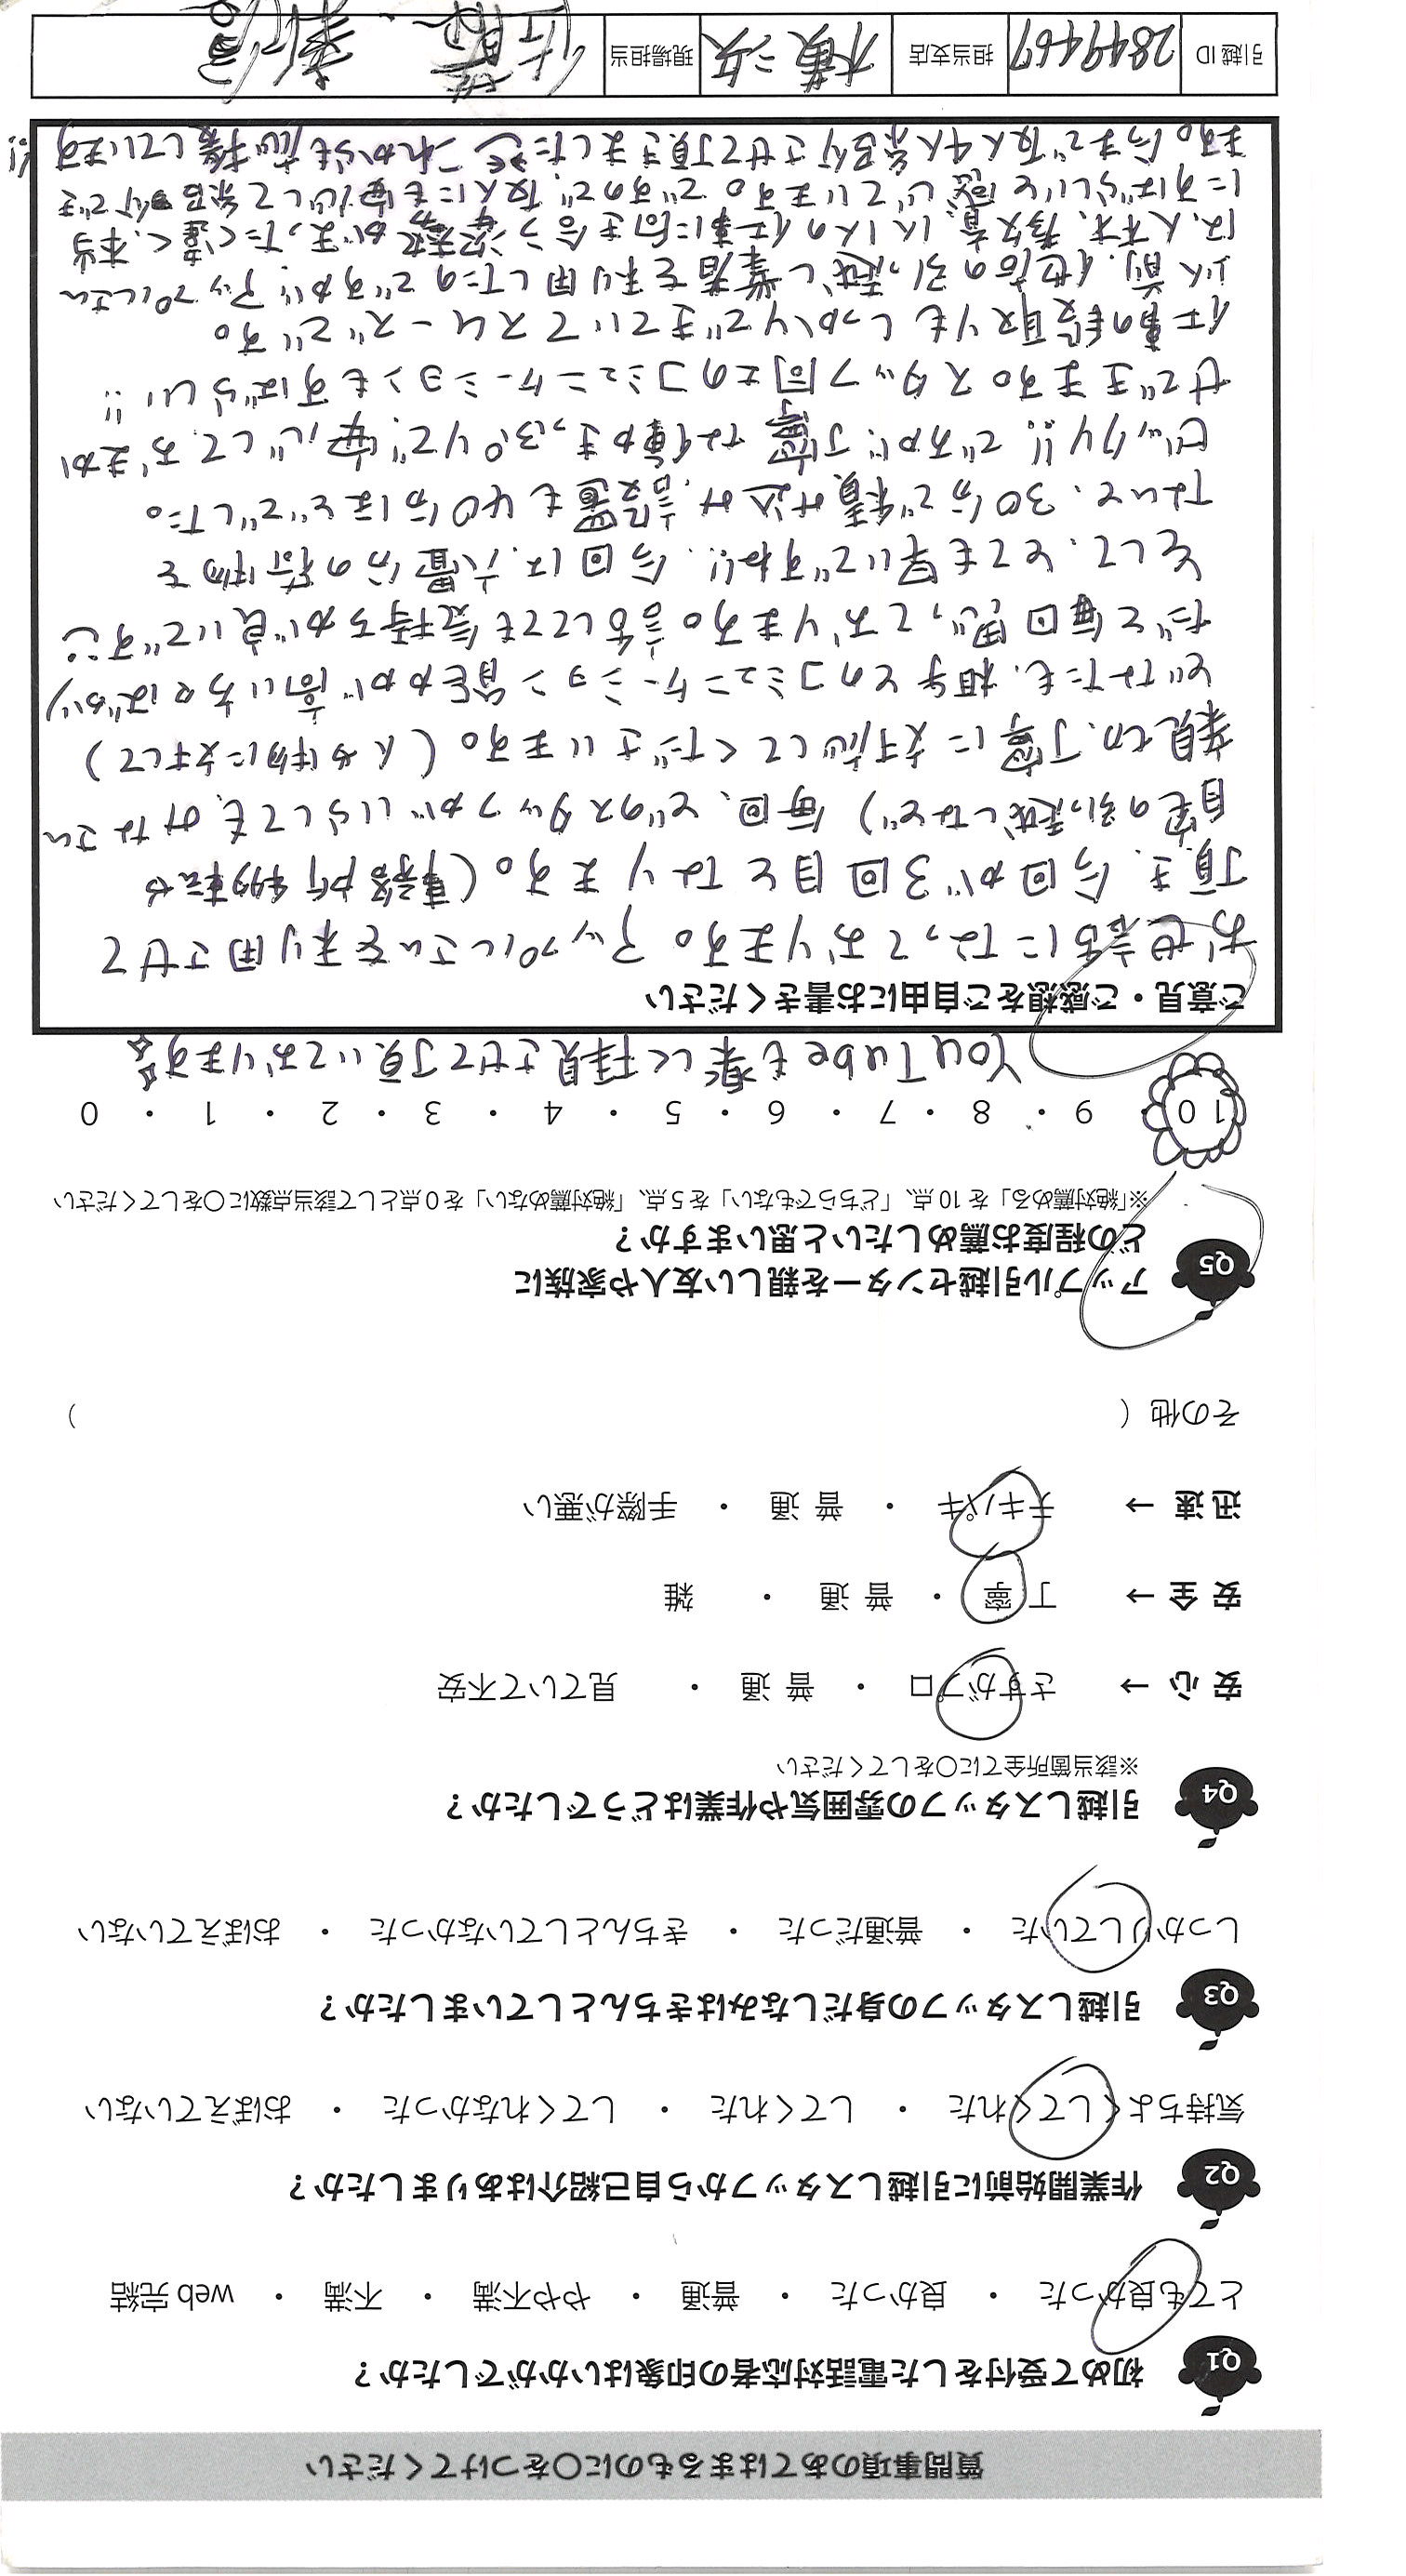 質問事項のあてはまるものに○をつけてください
Q1 初めて受付をした電話対応者の印象はいかがでしたか？
とても良かった ・ 良かった ・ 普通 ・ やや不満 ・ 不満 ・ web 完結
Q2 作業開始前に引越しスタッフから自己紹介はありましたか？
気持ちよくしてくれた ・ してくれた ・ してくれなかった ・ おぼえていない
Q3 引越しスタッフの身だしなみはきちんとしていましたか？
しっかりしていた ・ 普通だった ・ きちんとしていなかった ・ おぼえていない
Q4 引越しスタッフの雰囲気や作業はどうでしたか？
※該当箇所全てに○をしてください
安 心 → さすがプロ ・ 普 通 ・ 見ていて不安
安 全 → 丁 寧 ・ 普 通 ・ 雑
迅 速 → テキパキ ・ 普 通 ・ 手際が悪い
その他（ ）
Q5 アップル引越センターを親しい友人や家族に
どの程度お薦めしたいと思いますか？
※「絶対薦める」を 10 点、「どちらでもない」を 5 点、「絶対薦めない」を 0 点として該当点数に○をしてください
10 ・ 9 ・ 8 ・ 7 ・ 6 ・ 5 ・ 4 ・ 3 ・ 2 ・ 1 ・ 0
YouTubeも楽しく拝見させて頂いております
ご意見・ご感想をご自由にお書きください
お世話になっております。アップルさんを利用させて
頂き、今回が3回目となります。(事務所移転や
自宅の引っ越しなど) 毎回、どのスタッフがいらしても、みなさん
親切、丁寧に対応してくださいます。(人や物に対して)
どなたも、相手とのコミュニケーション能力が高い方々ばかり
だと毎回思っております。話してても気持ちが良いです
そして、とても早いですね!! 今回は、六畳分の荷物を
ないと、30分で積み込み、設置も40分ほどでした。
ビックリ!! ですが、丁寧な働きっぷりで、安心しておまか
せできます。スタッフ同士のコミュニケーションもすばらしい!!
仕事の段取りもしっかりできていてスムーズです。
以前、他店の引っ越し業者を利用したのですが、アップルさん
は、人材、教育、1人1人の仕事に向き合う姿勢がまったく違く、本当
にすばらしいと感じています。ですので、友人にも安心して紹介でき
ます。今まで友人4人紹介させて頂きました これからも応援しています!!
引越 ID 2849467 担当支店 横浜 現場担当 佐藤、